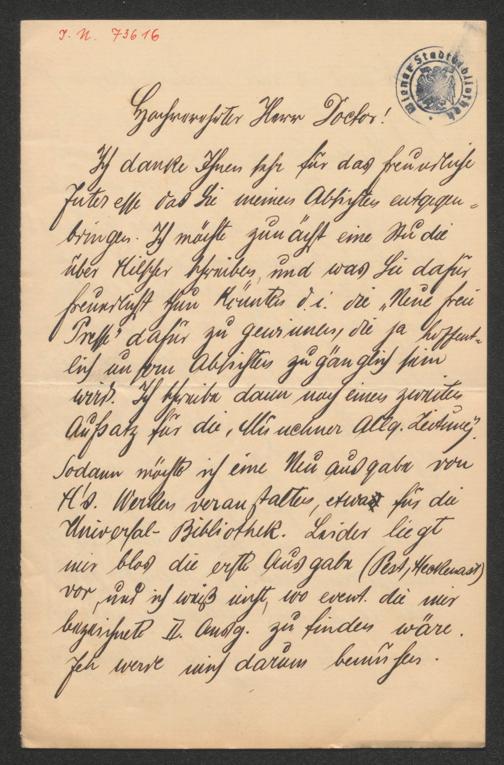 I. N. 73616
Wiener Stadtbibliothek
Hochverehrter Herr Doctor!
Ich danke Ihnen sehr für das freundliche
Interesse das Sie meinen Absichten entgegen-
bringen. Ich möchte zunächst eine Studie
über Hilscher schreiben, und was Sie dafür
freundlichst thun könnten d. i. die „Neue freie
Presse" dafür zu gewinnen, die ja hoffent-
lich unsern Absichten zugänglich sein
wird. Ich schreibe dann noch einen zweiten
Aufsatz für die „Münchner Allg. Zeitung".
Sodann möchte ich eine Neuausgabe von
H's. Werken veranstalten, etwa für die
Universal-Bibliothek. Leider liegt
mir blos die erste Ausgabe (Pest, Heckenast)
vor, und ich weiß nicht, wo event. die mir
bezeichnete II. Ausg. zu finden wäre.
Ich werde mich darum bemühen.